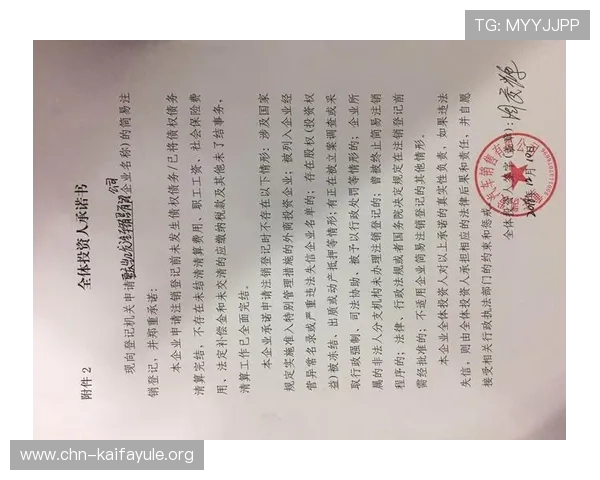 TG: MYYJJPP
附件 2
全体投资人承诺书
现向登记机关申请（企业名称)的简易注
公司
销登记，并郑重承诺：
本企业申请注销登记前未发生债权债务/已将债权债务
清算完结，不存在未结清清算费用、职工工资、社会保险费
用、法定补偿金和未交清的应缴纳税款及其他未了结事务，
清算工作已全面完结。
本企业承诺申请注销登记时不存在以下情形：涉及国家
规定实施准入特别管理措施的外商投资企业；被列入企业经
营异常名录或严重违法失信企业名单的；存在股权(投资权
益)被冻结、出质或动产抵押等情形；有正在被立案调查或采
取行政强制、司法协助、被予以行政处罚等情形的；企业所
属的非法人分支机构未办理注销登记的；曾被终止简易注销
程序的；法律、行政法规或者国务院决定规定在注销登记前
需经批准的；不适用企业简易注销登记的其他情形。
本企业全体投资人对以上承诺的真实性负责，如果违法
失信，则由全体投资人承担相应的法律后果和责任，并自愿
接受相关行政执法部门的约束和惩戒。
全体投资人签字
汽车销售
www.chn-kaifayule.org